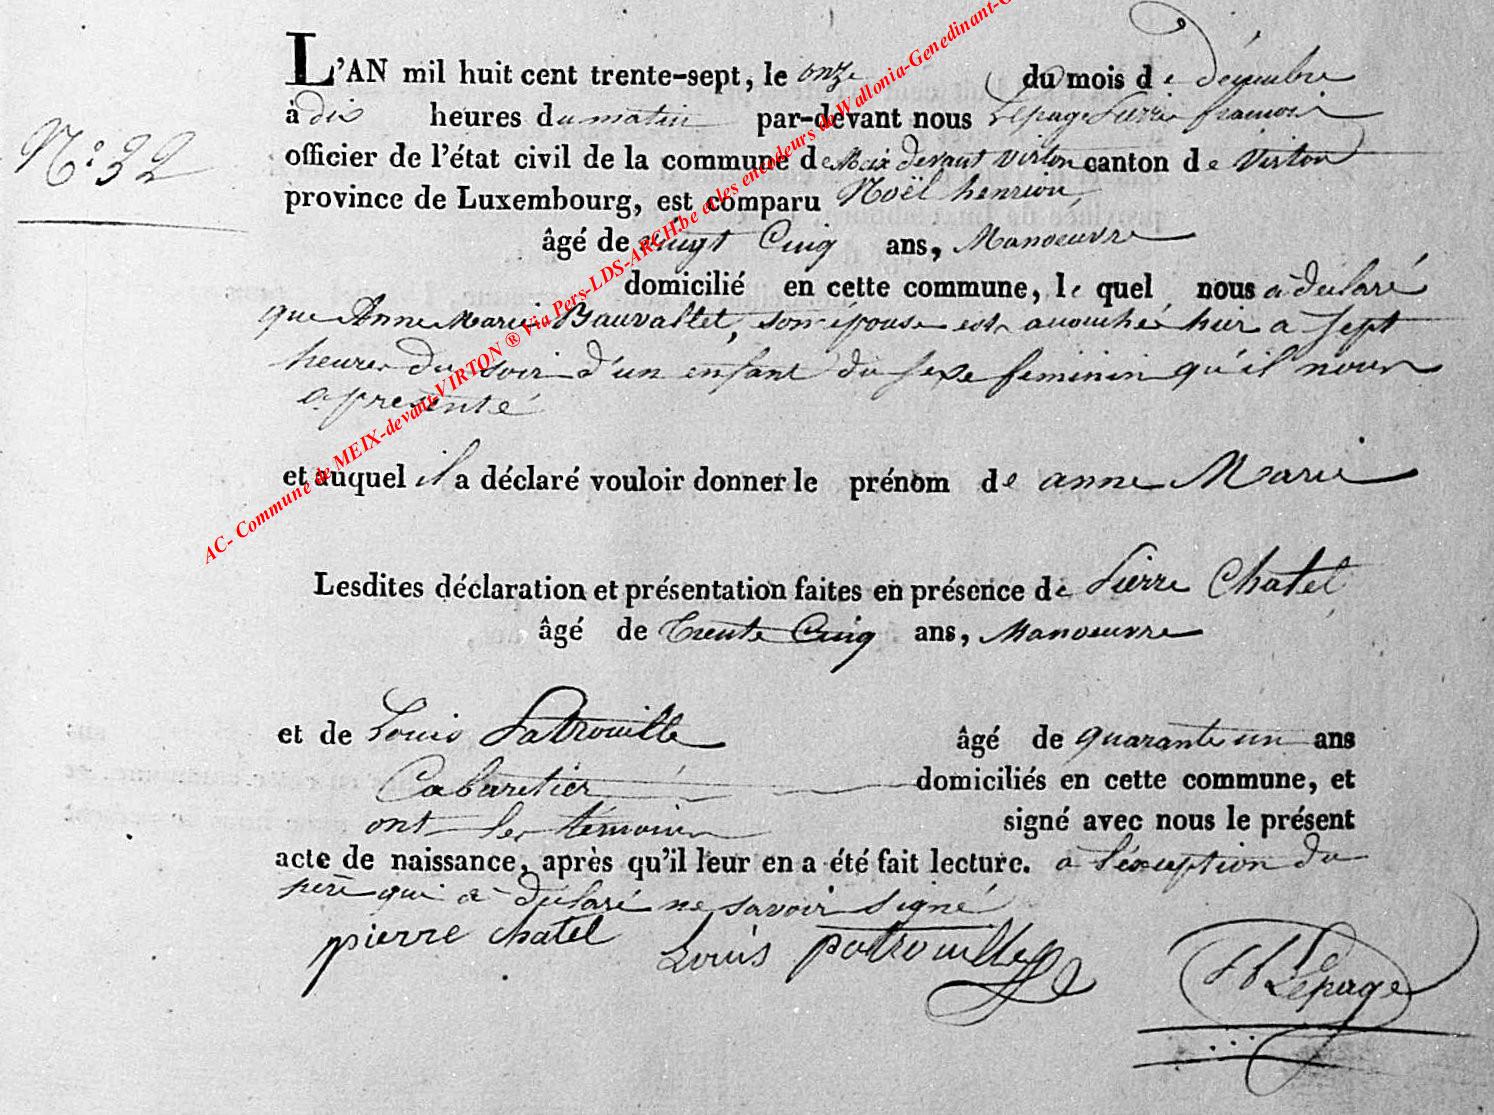 L'AN mil huit cent trente-sept, le onze du mois de décembre
à dix heures du matin par-devant nous Lepage Pierre françois
N.° 32
officier de l'état civil de la commune de Meix devant virton canton de Virton
province de Luxembourg, est comparu Noël henrion,
âgé de vingt Cinq ans, Manoeuvre
domicilié en cette commune, le quel nous a déclaré
que Anne Marie Bauvallet, son épouse est accouchée hier a sept
heures du soir d'un enfant du sexe feminin qu'il nous
a presenté
et auquel il a déclaré vouloir donner le prénom de anne Marie
Lesdites déclaration et présentation faites en présence de Pierre Chatel
âgé de trente Cinq ans, Manoeuvre
et de Louis Patrouille âgé de quarante un ans
Cabaretier domiciliés en cette commune, et
ont les témoins signé avec nous le présent
acte de naissance, après qu'il leur en a été fait lecture. a l'éxception du
père qui a déclaré ne savoir signé
pierre chatel Louis patrouille Lepage
AC- Commune de MEIX-devant-VIRTON ® Via Pers-LDS-ARCH.be et les encodeurs de Wallonia-Genedinant-G